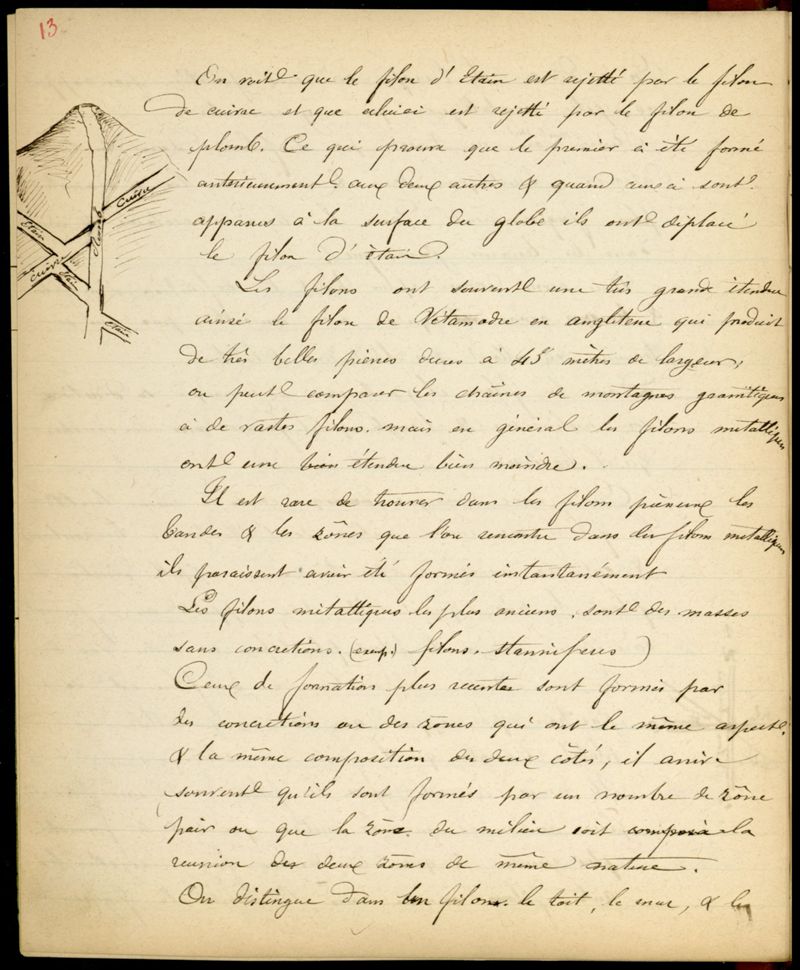 13.
On voit que le filon d'Etain est rejetté par le filon
de cuivre et que celui ci est rejetté par le filon de
plomb. Ce qui prouve que le premier a été formé
anterieurement aux deux autres & quand ceux ci sont
apparus à la surface du globe ils ont déplacé
le filon d'étain.
Cuivre
Plomb
Etain
Cuivre
Etain
Etain
Les filons ont souvent une très grande étendue
ainsi le filon de en angleterre qui produit
de très belles pierres dures à 45 mètres de largeur;
on peut comparer les chaînes de montagnes granitiques
à de vastes filons. mais en général les filons metalliques
ont une étendue bien moindre.
Il est rare de trouver dans les filons pierreux les
bandes & les zônes que l'on rencontre dans les filons metalliques
ils paraissent avoir été formés instantanément
Les filons métalliques les plus anciens, sont des masses
sans concretions. (exemp.) filons stannifères)
Ceux de formation plus recente sont formés par
des concretions ou des zones qui ont le même aspect
& la même composition des deux côtés, il arrive
souvent qu'ils sont formés par un nombre de zône
pair ou que la zône du milieu soit la
reunion des deux zônes de même nature.
On distingue dans un filon le toit, le mur, & les